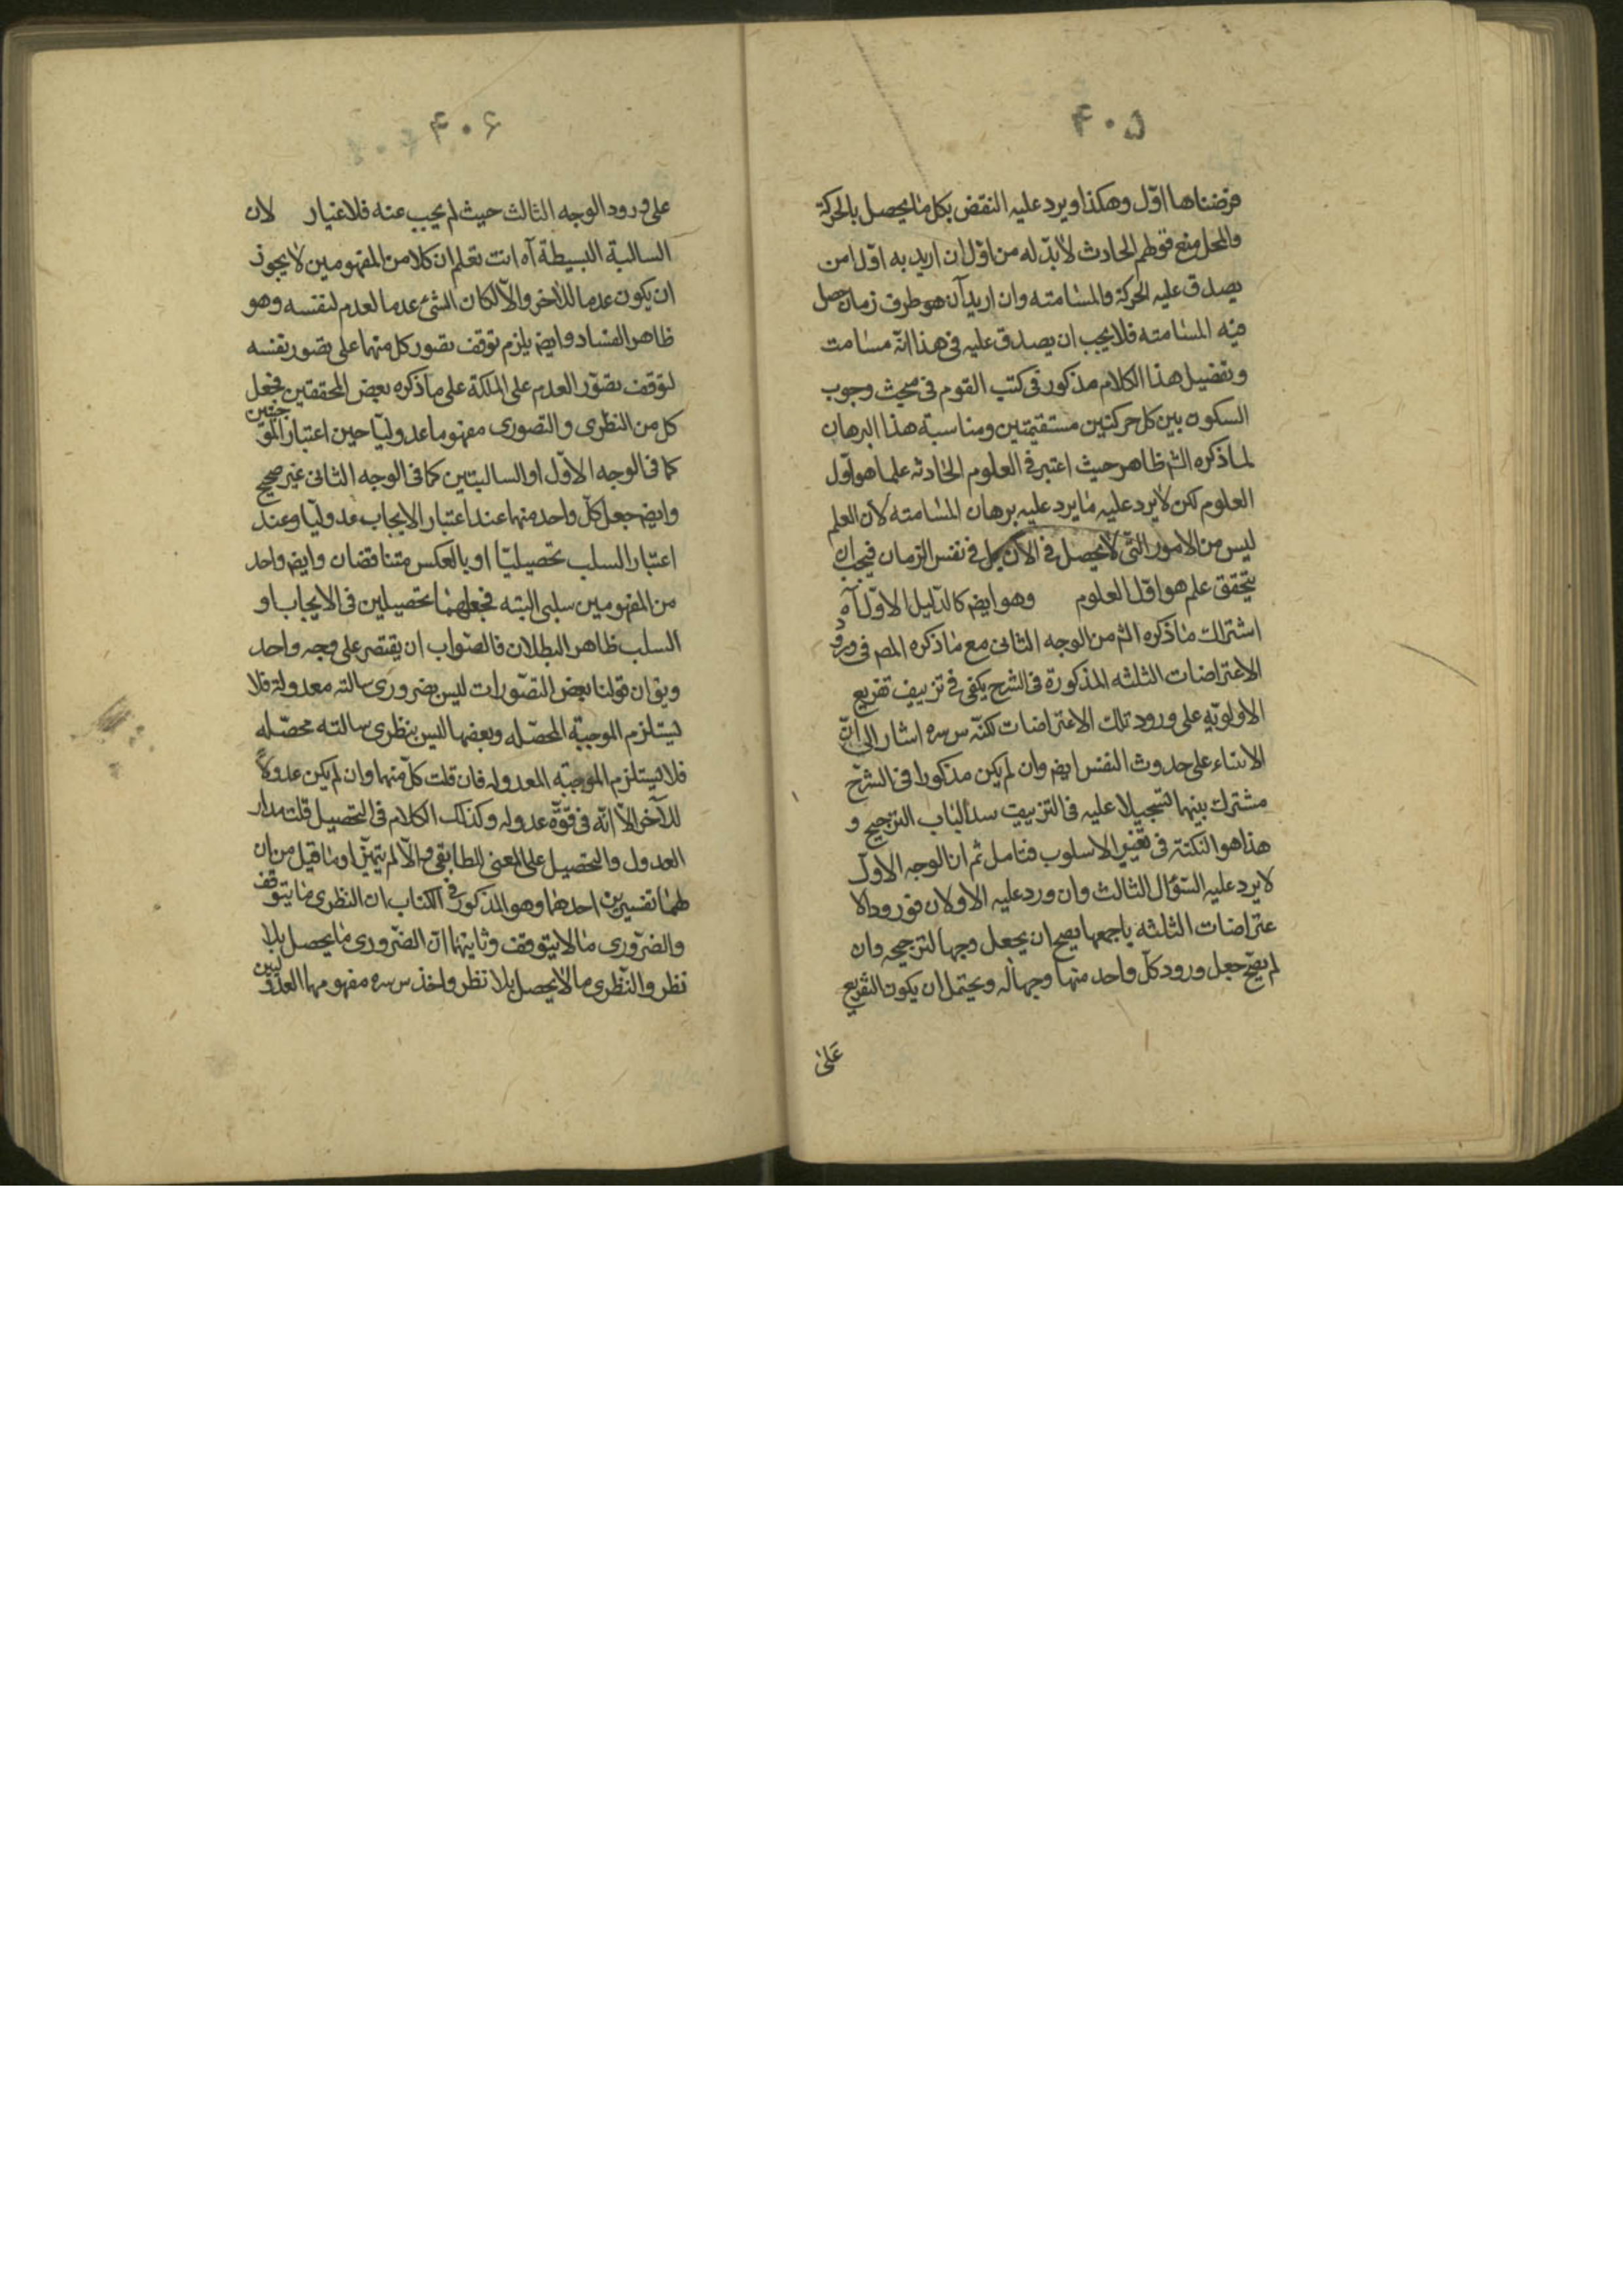 ۴۰۵
فرضناها اوّل وهكذا ويرد عليه النقض بكل ما يحصل بالحركة
والحل منع قولهم الحادث لا بدّ له من اوّل ان اريد به اوّل امن
يصدق عليه الحركة والمسامته وان اريد آن هو طرف زمان حصل
فيه المسامته فلا يجب ان يصدق عليه فى هذا انّه مسامت
وتفصيل هذا الكلام مذكور فى كتب القوم فى مبحث وجوب
السكون بين كل حركتين مستقيمتين ومناسبة هذا البرهان
لما ذكره الشم ظاهر حيث اعتبر فى العلوم الحادثه علما هو اوّل
العلوم لكن لا يرد عليه ما يرد عليه برهان المسامته لأن العلم
ليس من الامور التّى لا يحصل فى الآن بل فى نفس الزمان فيجب ان
يتحقق علم هو اوّل العلوم وهو ايضم كالدّليل الاوّل آه
اشتراك ما ذكره الشم من الوجه الثانى مع ما ذكره المصم فى ورود
الاعتراضات الثلثه المذكورة فى الشرح يكفى فى تزييف تفريع
الاولويّه على ورود تلك الاعتراضات لكنّه س سره اشار الى انّ
الابتناء على حدوث النفس ايضم وان لم يكن مذكورا فى الشرح
مشترك بينهما تسجيلا عليه فى التزييف سدا لباب الترجيح و
هذا هو النكتة فى تغيير الاسلوب فتامل ثم ان الوجه الاوّل
لا يرد عليه السّؤال الثالث وان ورد عليه الاولان فورود الا
عتراضات الثلثه باجمعها يصح ان يجعل وجها لترجيحه وان
لم يصّح جعل ورود كلّ واحد منها وجها له ويحتمل ان يكون التفريع
على
۴۰۶
على ورود الوجه الثالث حيث لم يجب عنه فلا غبار لان
السالبة البسيطة آه انت تعلم ان كلا من المفهومين لا يجوز
ان يكون عدما للاخر والّا لكان الشئ عدما لعدم لنفسه وهو
ظاهر الفساد وايضم يلزم توقف تصور كل منهما على تصور نفسه
لتوقف تصوّر العدم على الملكة على ما ذكره بعض المحققين فجعل
كل من النظرى والتصورى مفهوما عدوليّا حين اعتبار الموجبتين
كما فى الوجه الاوّل او السالبتين كما فى الوجه الثانى غير صحيح
وايضم جعل كلّ واحد منهما عند اعتبار الايجاب عدوليّا وعند
اعتبار السلب تحصيليّا او بالعكس متناقضان وايضم واحد
من المفهومين سلبى البته فجعلهما تحصيلين فى الايجاب او
السلب ظاهر البطلان فالصّواب ان يقتصر على وجه واحد
ويقم ان قولنا بعض التصّورات ليس بضرورى سالبته معدولة فلا
يستلزم الموجبّة المحصّله وبعضها ليس بنظرى سالبته محصّله
فلا يستلزم الموجبّه المعدوله فان قلت كلّ منهما وان لم يكن عدولاً
للآخر الّا انّه فى قوّة عدوله وكذلك الكلام فى التحصيل قلت مدار
العدول والتحصيل على المعنى المطابقى والّا لم يتميّزا وما قيل من ان
لهما تفسيرين احدهما وهو المذكور فى الكتاب ان النظرى ما يتوقف
والضّرورى ما لا يتوقف وثانيهما ان الضّرورى ما يحصل بلا
نظر والنّظرى ما لا يحصل بلا نظر واخذ س سره مفهومهما العدوليين